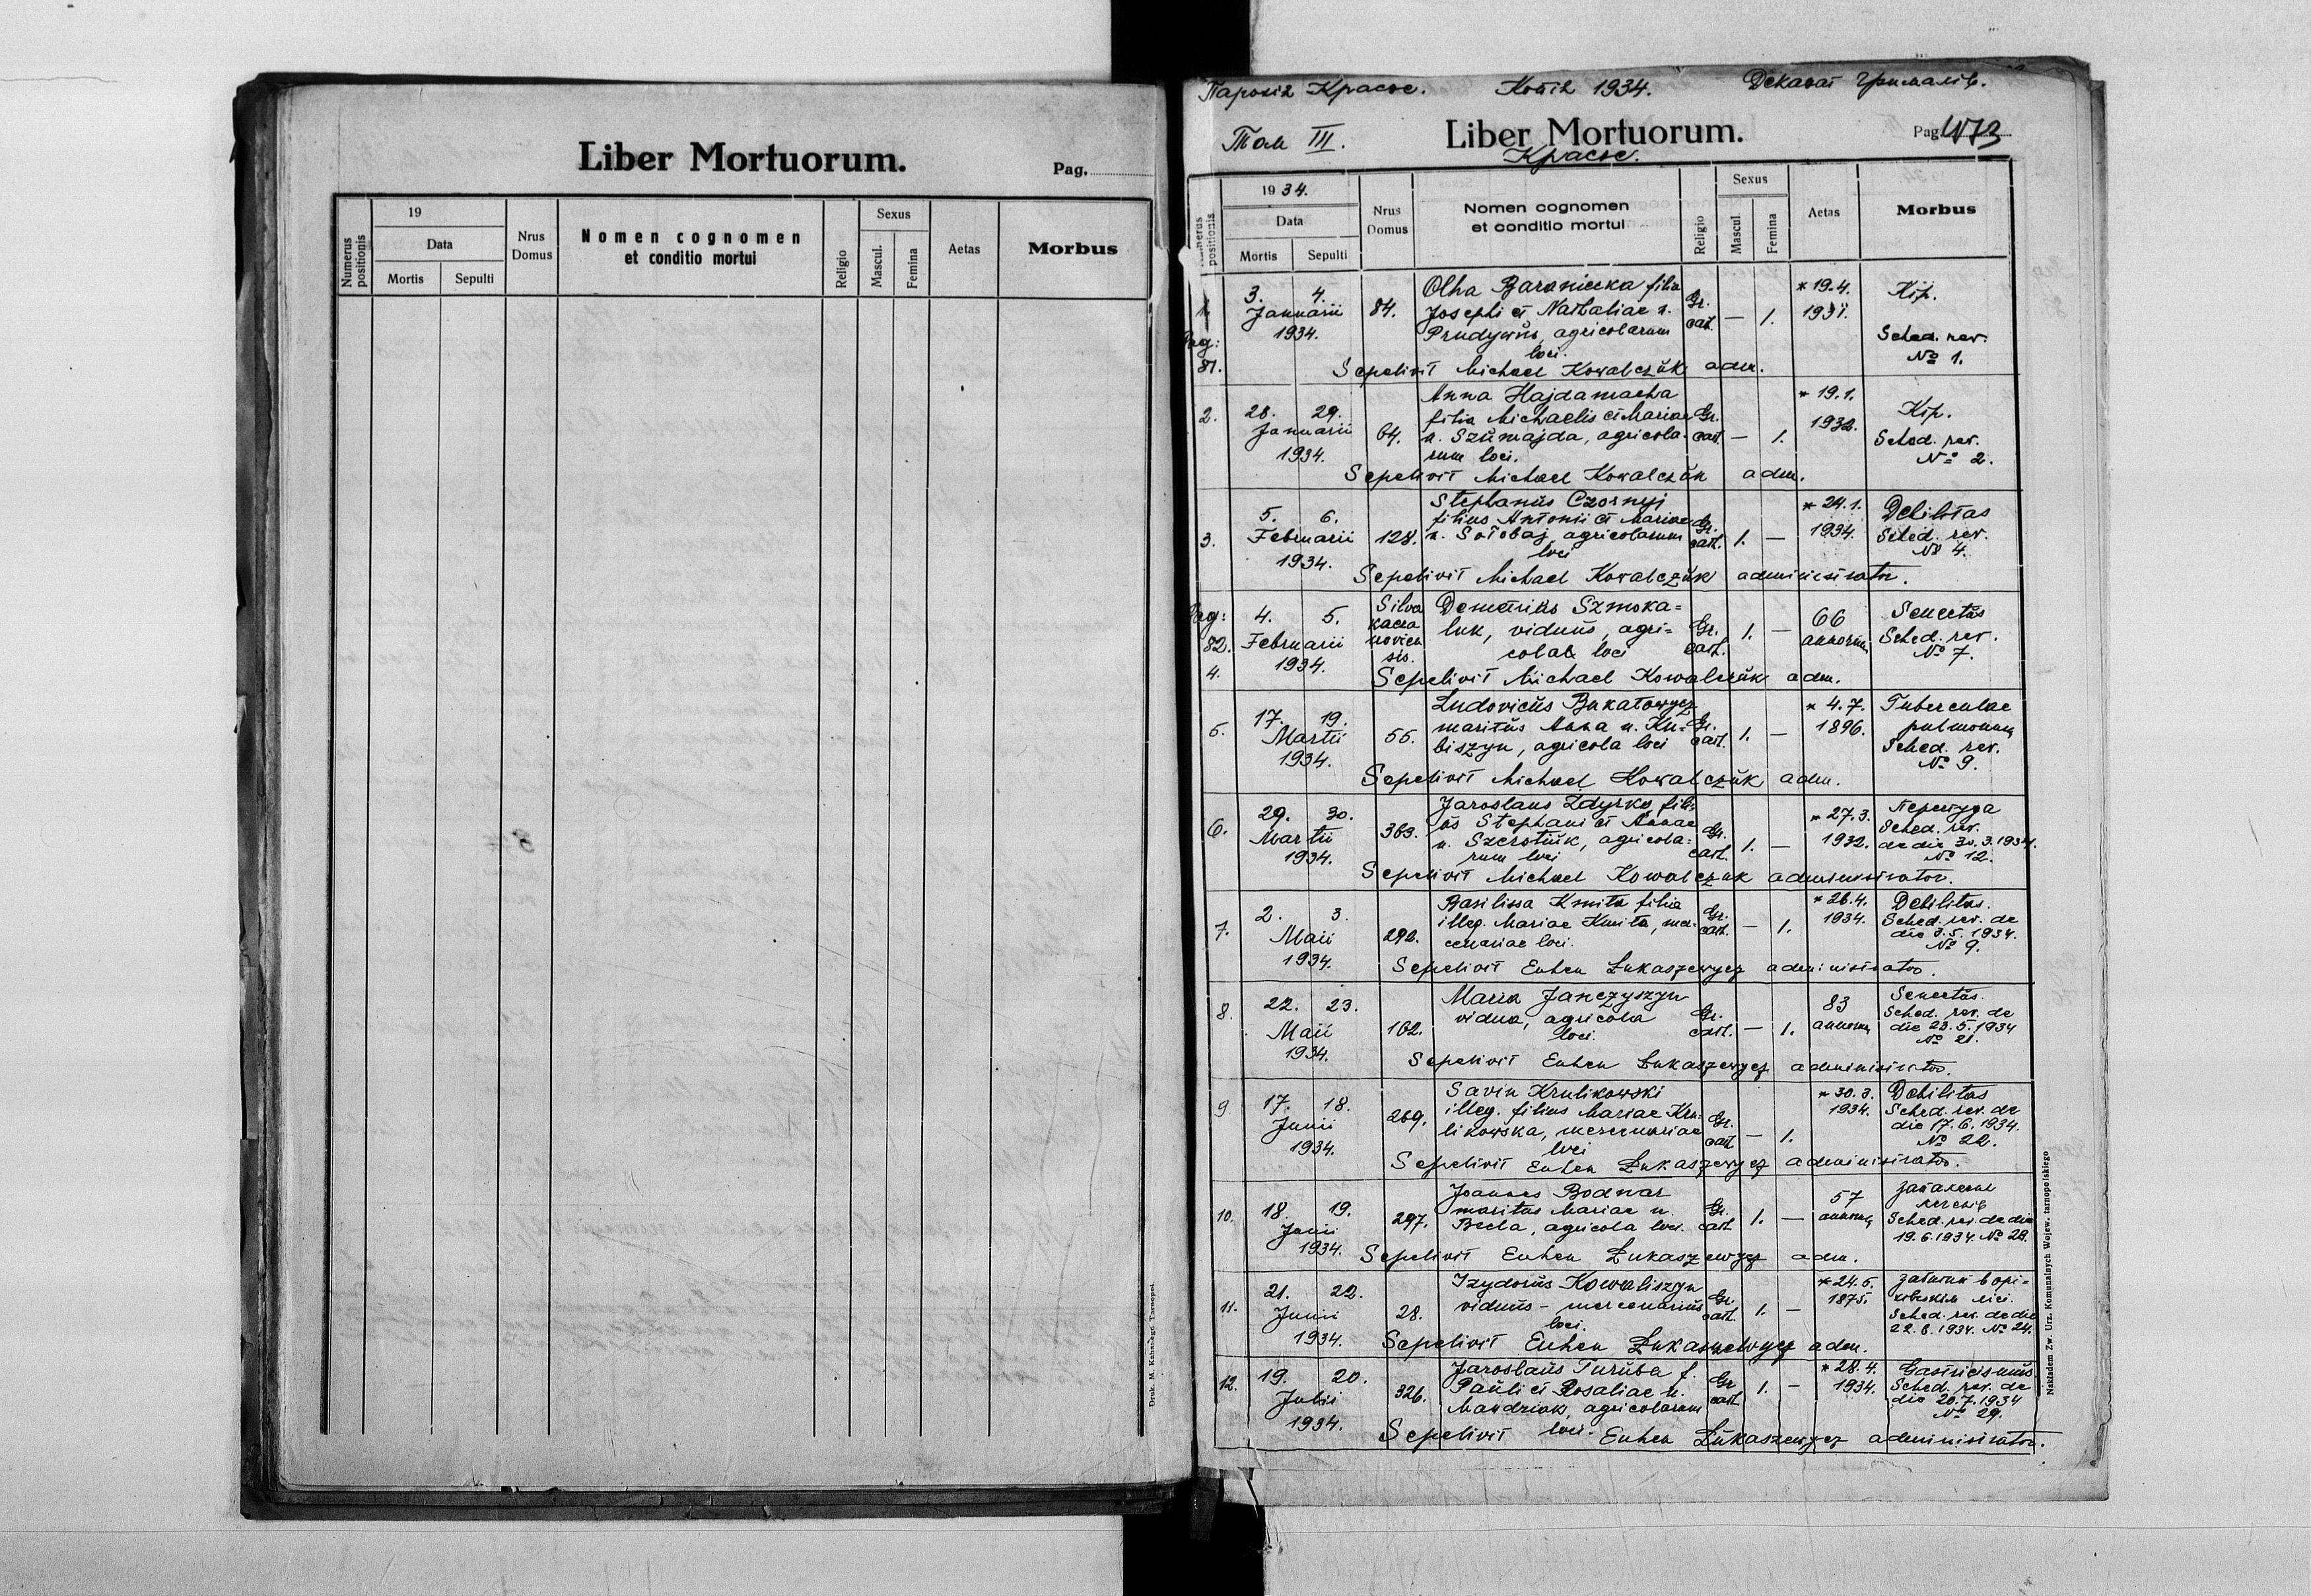 Liber Mortuorum.
Pag.
Numerus positionis
19
Data
Mortis
Sepulti
Nrus Domus
Nomen cognomen
et conditio mortui
Religio
Sexus
Mascul.
Femina
Aetas
Morbus
Druk. M. Kahne
Парохія Красне. Копія 1934. Деканат Грималів.
Том III.
Liber Mortuorum.
Pag.
Красне.
positionis
1934.
Data
Mortis
Sepulti
Nrus
Domus
Nomen cognomen
et conditio mortui
Religio
Sexus
Mascul.
Femina
Aetas
Morbus
1.
Pag:
81.
3. 4.
Januarii
1934.
84.
Olha Baraniecka filia
Josephi et Nathaliae n.
agricolarum
loci.
Gr.
cat.
— 1.
* 19.4.
1931.
Кір.
Sched. rev.
№ 1.
Sepelivit Michael Kowalczuk adm.
2.
28. 29.
Januarii
1934.
64.
Anna Hajdamacha
filia Michaelis et Mariae
n. Szumajda, agricola-
rum loci.
Gr.
cat.
— 1.
* 19.1.
1932.
Кір.
Sched. rev.
№ 2.
Sepelivit Michael Kowalczuk adm.
3.
5. 6.
Februarii
1934.
128.
Stephanus Czornyj
filius Antonii et Mariae
n. Sotobaj, agricolarum
loci
Gr.
cat.
1. —
* 24.1.
1934.
Debilitas
Sched. rev.
№ 4.
Sepelivit Michael Kowalczuk administrator.
Pag:
82.
4.
4. 5.
Februarii
1934.
Silva
sis.
Demetrius Szmoka=
luk, viduus, agri=
cola loci
Gr.
cat.
1. —
66
annorum
Senectus
Sched. rev.
№ 7.
Sepelivit Michael Kowalczuk adm.
5.
17. 19.
Martii
1934.
55.
Ludovicus Bukatowycz
maritus Anna n. Ku=
biszyn, agricola loci
Gr.
cat.
1. —
* 4.7.
1896.
Tuberculae
pulmonum
Sched. rev.
№ 9.
Sepelivit Michael Kowalczuk adm.
6.
29. 30.
Martii
1934.
363.
Jaroslaus Zdyrko fili=
us Stephani et Annae
n. Szerstiuk, agricola=
rum loci
Gr.
cat.
1. —
* 27.3.
1932.
Sched. rev.
de die 30.3.1934.
№ 12.
Sepelivit Michael Kowalczuk administrator.
7.
2. 3.
Maii
1934.
292.
Basilissa Kmita filia
illeg. Mariae Kmita, mer=
cenariae loci.
Gr.
cat.
— 1.
* 26.4.
1934.
Debilitas.
Sched. rev. de
die 3.5.1934.
№ 9.
Sepelivit Euhen Łukaszewycz administrator.
8.
22. 23.
Maii
1934.
162.
Maria Janczyszyn
vidua, agricola
loci.
Gr.
cat.
— 1.
83
annorum
Senectus.
Sched. rev. de
die 23.5.1934
№ 21.
Sepelivit Euhen Łukaszewycz administrator.
9.
17. 18.
Junii
1934.
269.
Savin Krulikowski
illeg. filius Mariae Kru=
likowska, mercenariae
loci
Gr.
cat
— 1.
* 30.3.
1934.
Debilitas
Sched. rev. de
die 17.6.1934.
№ 22.
Sepelivit Euhen Łukaszewycz administrator.
10.
18. 19.
Junii
1934.
297.
Joannes Bodnar
maritus Mariae n.
Becla, agricola loci.
Gr.
cat.
1. —
57
annorum
запалене
легенів
Sched. rev. de die
19.6.1934. № 23.
Sepelivit Euhen Łukaszewycz adm.
11.
21. 22.
Junii
1934.
28.
Izydorus Kowaliszyn
viduus - mercenarius
loci.
Gr.
cat.
1. —
* 24.5.
1875.
лісі.
Sched. rev. de die
22.6.1934. № 24.
Sepelivit Euhen Łukaszewycz adm.
12.
19. 20.
Julii
1934.
326.
Jaroslaus Turuba f.
Pauli et Rosaliae n.
Mandziak, agricolarum
loci.
Gr
cat
1. —
* 28.4.
1934.
Gastricismus
Sched. rev. de
die 20.7.1934
№ 29.
Sepelivit Euhen Łukaszewycz administrator.
Nakładem Zw. Urz. Komunalnych Wojew. tarnopolskiego